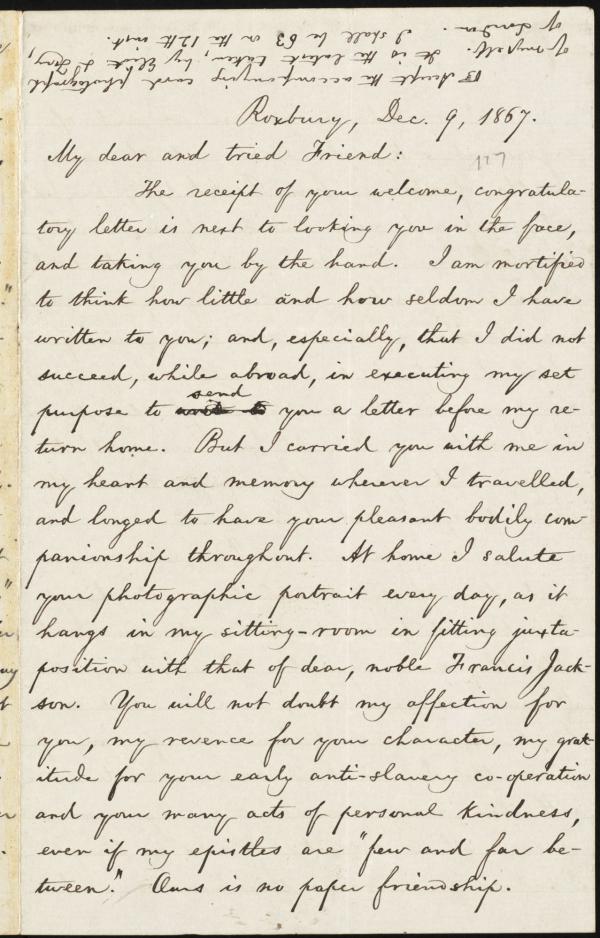 ☞ Accept the accompanying card photograph
of myself. It is the latest taken, by Elliot & Fry,
of London. I shall be 63 on the 12th inst.
Roxbury, Dec. 9, 1867.
My dear and tried Friend:
127
The receipt of your welcome, congratula-
tory letter is next to looking you in the face,
and taking you by the hand. I am mortified
to think how little and how seldom I have
written to you; and, especially, that I did not
succeed, while abroad, in executing my set
send
purpose to write to you a letter before my re-
turn home. But I carried you with me in
my heart and memory wherever I travelled,
and longed to have your pleasant bodily com-
panionship throughout. At home I salute
your photographic portrait every day, as it
hangs in my sitting-room in fitting juxta-
position with that of dear, noble Francis Jack-
son. You will not doubt my affection for
you, my revence for your character, my grat-
itude for your early anti-slavery co-operation
and your many acts of personal kindness,
even if my epistles are "few and far be-
tween." Ours is no paper friendship.